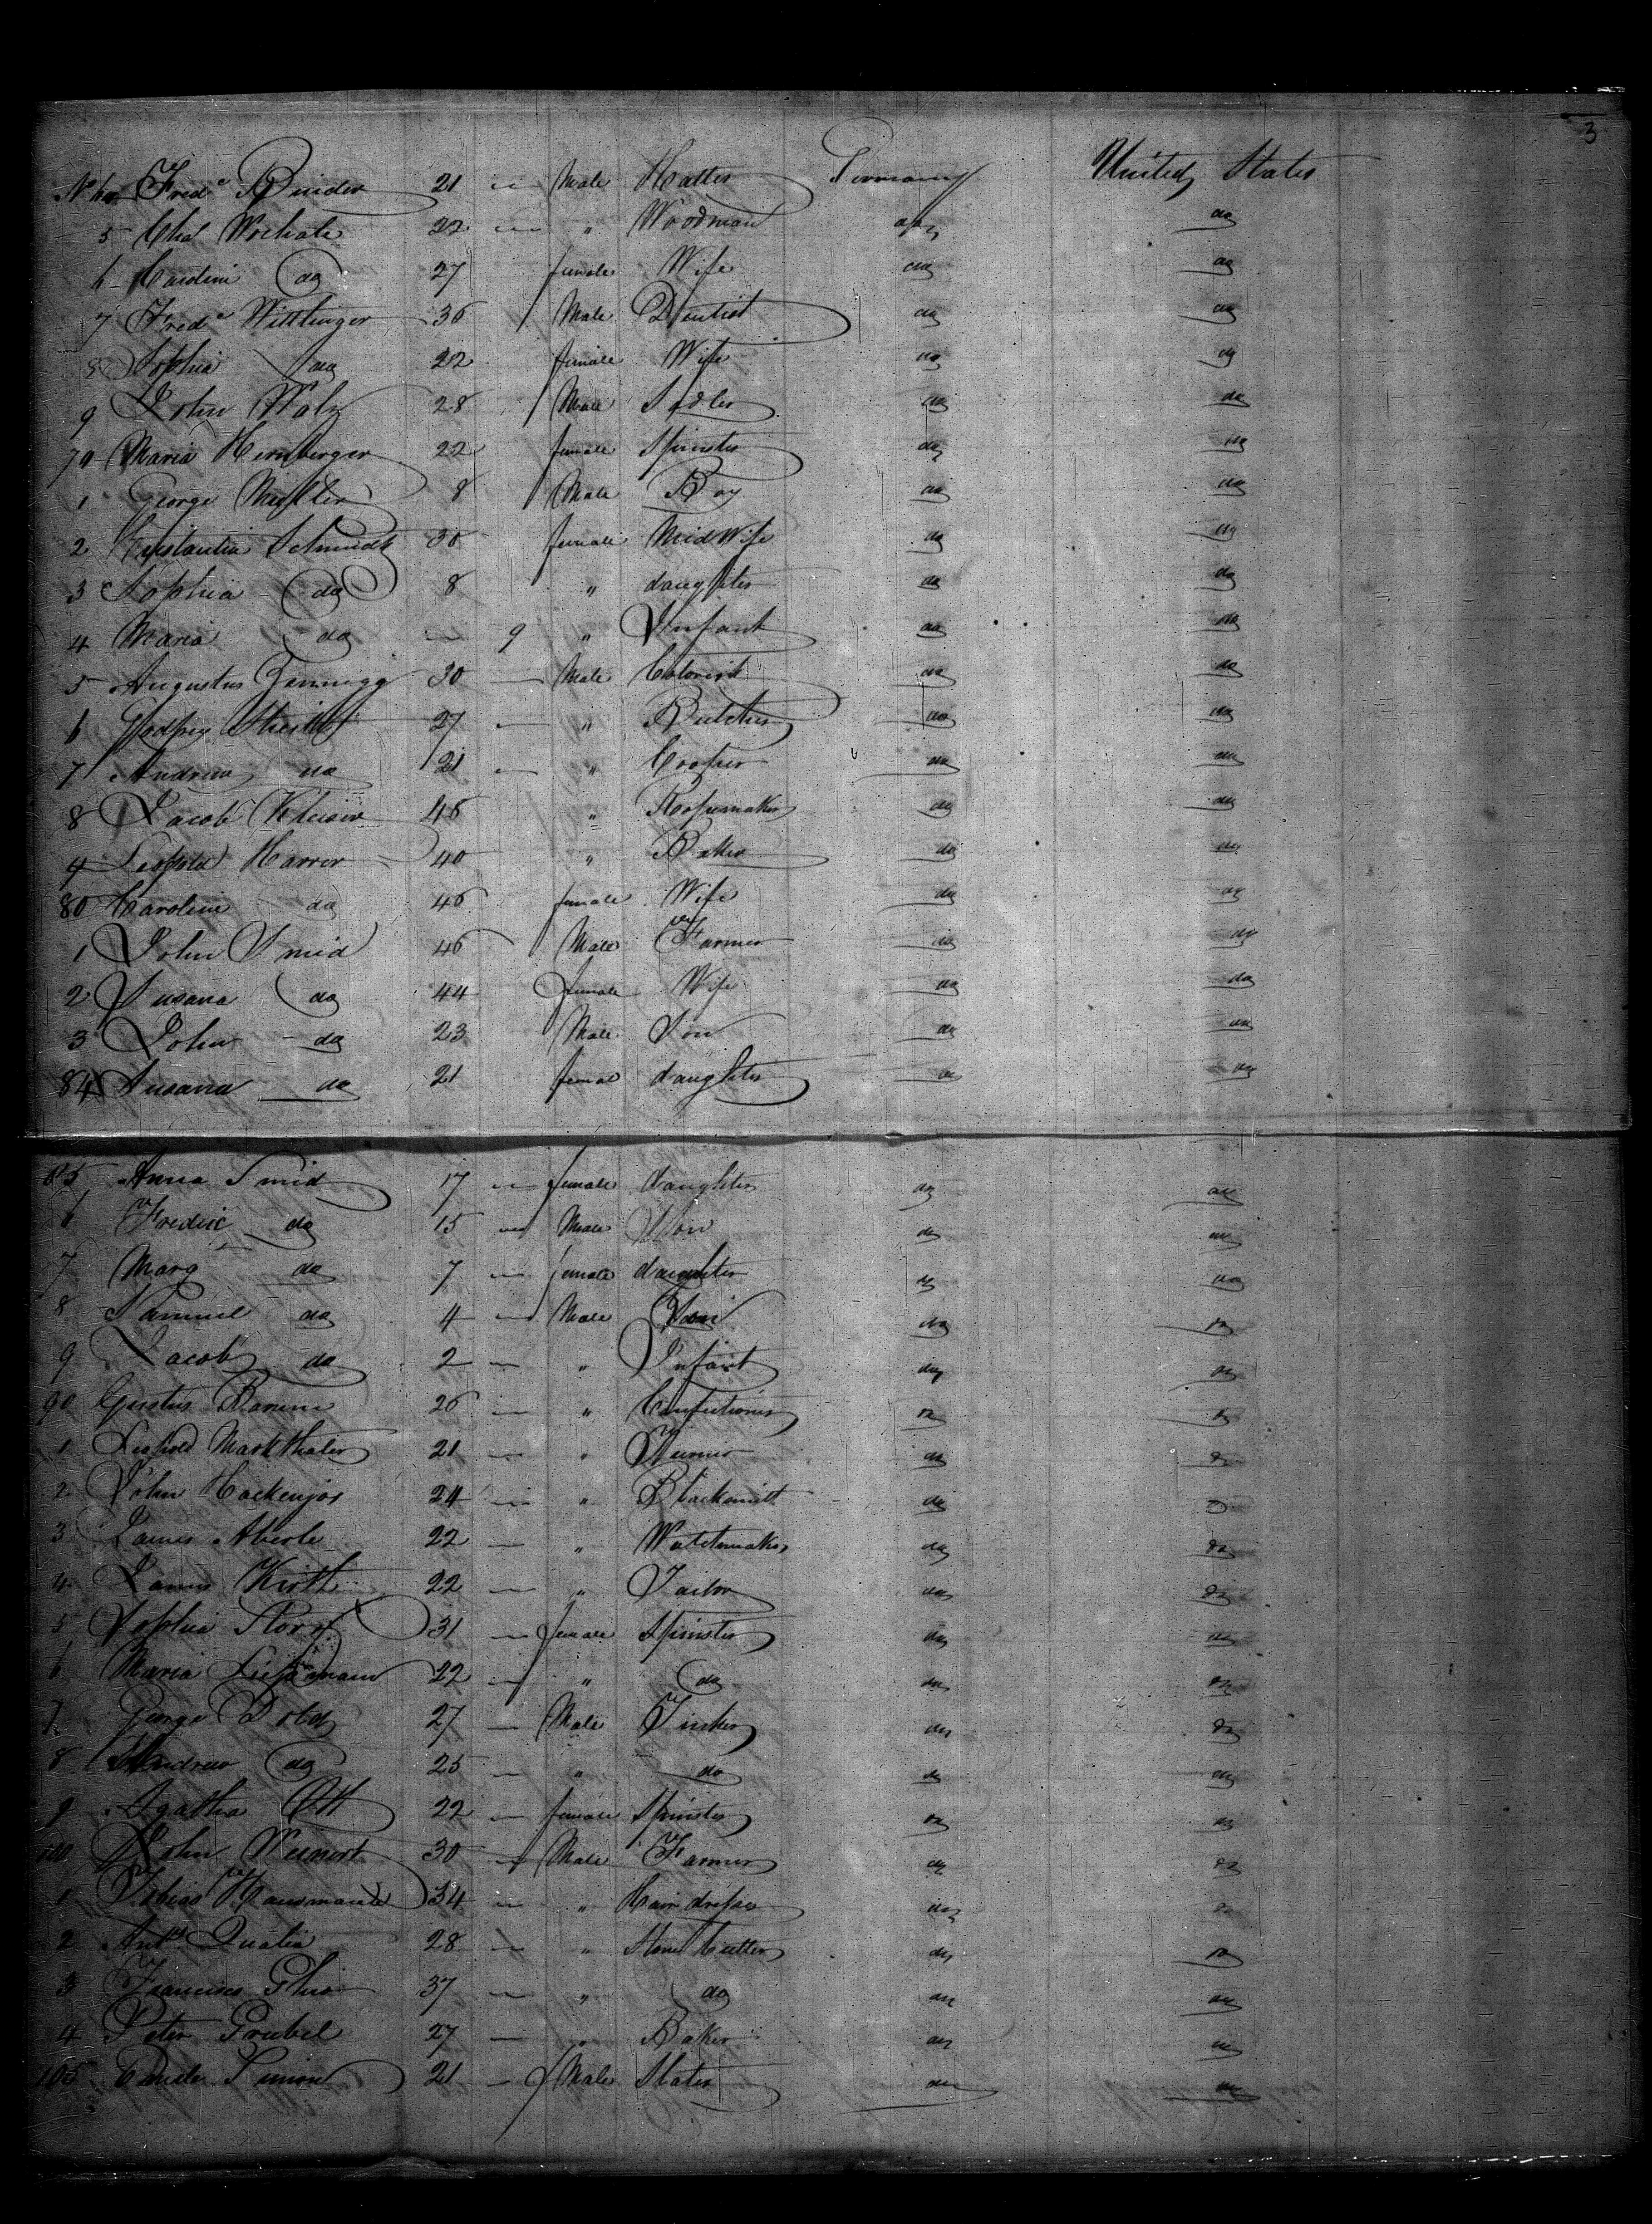 3
Fred^k Binder 21 " Male Hatter Germany United States
5 Chas 22 " " Woodman do do
6 Caroline do 27 female Wife do do
7 Fred^k Wittlinger 36 Male Dentist do do
8 Sophia do 22 female Wife do do
9 John Walz 28 Male Sadler do do
70 Maria Hernberger 22 female Spinster do do
1 George Muller 8 Male Boy do do
2 Schmidt 30 female MidWife do do
3 Sophia do 8 " daughter do do
4 Maria do — 9 " Infant do do
5 Augustus 30 — Male Colorist do do
6 Godfrey 27 — " Butcher do do
7 Andrew do 21 — " Cooper do do
8 Jacob 46 " Ropemaker do do
9 Leopold Harrer 40 " Baker do do
80 Caroline do 46 female Wife do do
1 John Smid 46 Male Farmer do do
2 Susana do 44 female Wife do do
3 John do 23 Male Son do do
84 Susana do 21 femal daughter do do
85 Anna Smid 17 " female daughter do do
6 Frederic do 15 " Male Son do do
7 Marg do 7 — female daughter do do
8 Samuel do 4 — Male Son do do
9 Jacob do 2 — " Infant do do
90 Gustus 26 — " Confectioner do do
1 Leopold Markthaler 21 — " do do
2 John Hackenjos 24 — " Blacksmith do do
3 James Aberle 22 — " Watchmaker do do
4 James 22 — " Tailor do do
5 Sophia Storz 31 — female Spinster do do
6 Maria 22 — " do do do
7 George Dold 27 — Male Tinker do do
8 Andrew do 25 — " do do do
9 Agatha Ott 22 — female Spinster do do
100 John 30 — Male Farmer do do
1 Tobias Hausmann 34 — " Hair dresser do do
2 Ant^o Qualia 28 — " Stone Cutter do do
3 Francisco 37 — " do do do
4 Peter Grubel 27 — " Baker do do
105 Simon 21 — Male Slater do do